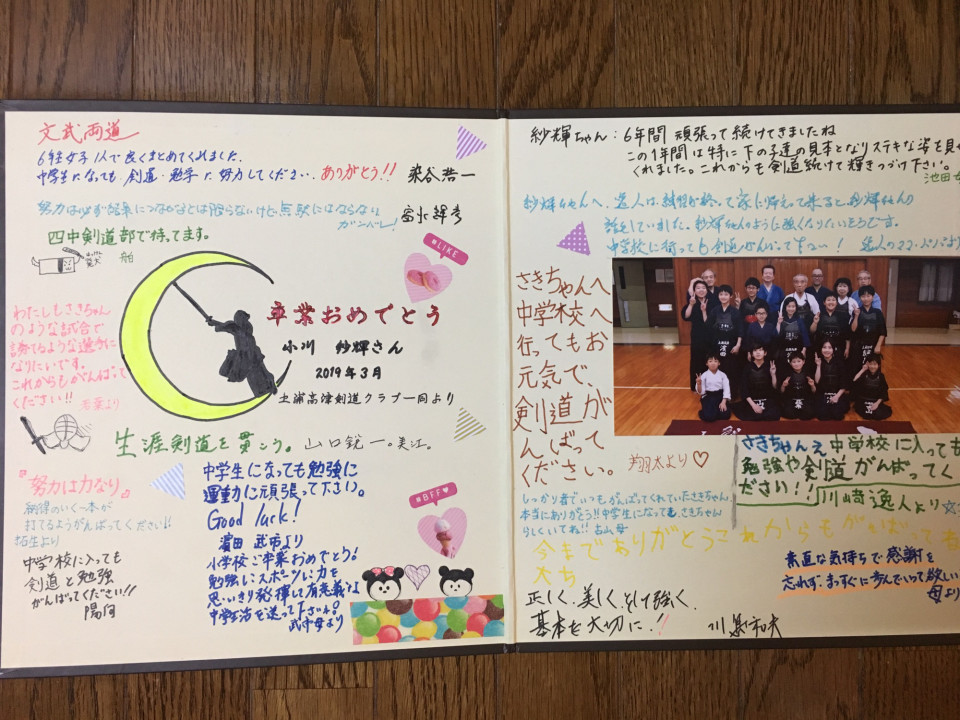 文武両道
6年生女子1人で良くまとめてくれました。
中学生になっても剣道・勉学に努力してください。ありがとう!!
染谷浩一
努力は必ず結果につながるとは限らないけど、無駄にはならない
ガンバレ!
四中剣道部で待ってます。
舶
#LIKE
わたしもさきちゃん
のような試合で
勝てるような選手に
なりたいです。
これからもがんばって
ください!! 若葉より
卒業おめでとう
小川 紗輝さん
2019年3月
土浦高津剣道クラブ一同より
生涯剣道を貫こう。山口鋭一。美江。
『努力は力なり』
納得のいく一本が
打てるようがんばってください!!
拓生より
中学校に入っても
剣道と勉強
がんばってください!!
陽向
中学生になっても勉強に
運動に頑張って下さい。
Good luck!
濱田 武市より
小学校ご卒業おめでとう!
勉強にスポーツに力を
思いきり発揮して有意義な
中学生活を送って下さいね。
母より
#BFF♥
紗輝ちゃん:6年間 頑張って続けてきましたね
この1年間は特に下の子達の見本となりステキな姿を見せ
くれました。これからも剣道続けて輝きつづけ下さい。
池田
紗輝ちゃんへ、逸人は稽古が終って家に帰って来ると、紗輝ちゃんの
話をしていました。紗輝ちゃんのように強くなりたいそうです。
中学校に行っても剣道がんばって
さきちゃんへ
中学校へ
行ってもお
元気で、
剣道が
んばって
ください。
翔太より♡
さきちゃんえ中学校に入っても
勉強や剣道がんばってく
ださい!! 川崎逸人より☆
しっかり者でいつもがんばってくれていたさきちゃん
本当にありがとう!!中学生になっても、さきちゃん
らしくいてね!! 古山 母
今までありがとうこれからもがんばって
大ち
素直な気持ちで感謝を
忘れず、まっすぐに歩んでいって欲しい
母より
正しく、美しく、そして強く、
基本を大切に!!